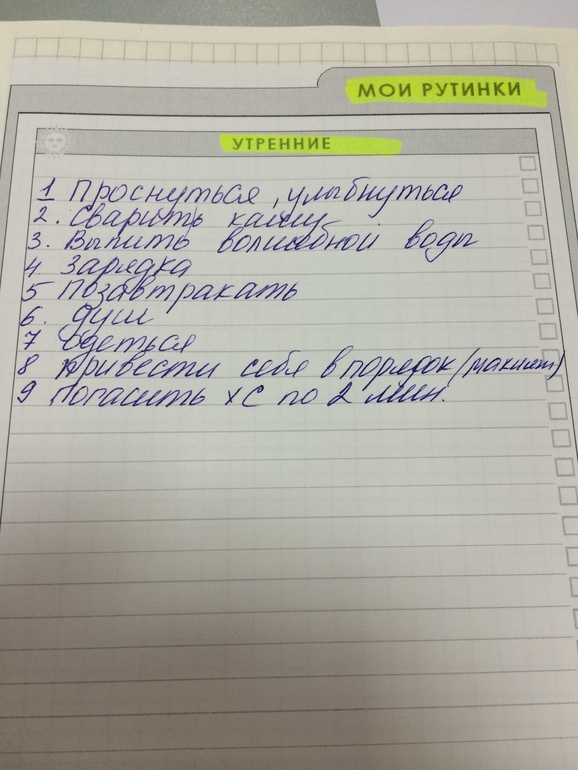 МОИ РУТИНКИ
УТРЕННИЕ
1 Проснуться, улыбнуться
2. Сварить кашу
3. Выпить волшебной воды
4 Зарядка
5 Позавтракать
6. Душ
7 Одеться
8 Привести себя в порядок (макияж)
9 Погасить ХС по 2 мин.